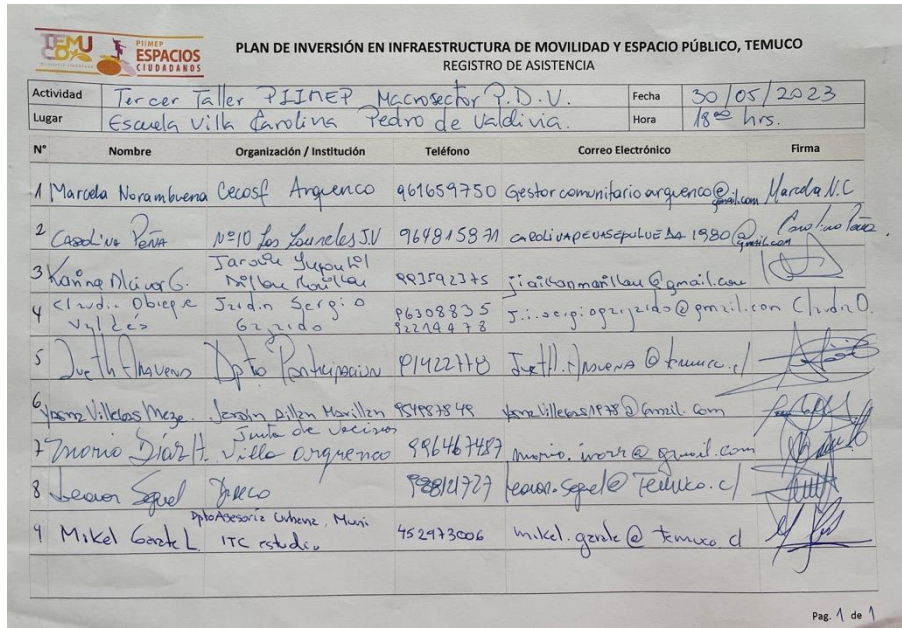 TEMUCO
PIIMEP
ESPACIOS
CIUDADANOS
PLAN DE INVERSIÓN EN INFRAESTRUCTURA DE MOVILIDAD Y ESPACIO PÚBLICO, TEMUCO
REGISTRO DE ASISTENCIA
Actividad Tercer Taller PIIMEP Macrosector P.D.V. Fecha 30/05/2023
Lugar Escuela Villa Carolina Pedro de Valdivia. Hora 18:00 hrs.
N° Nombre Organización / Institución Teléfono Correo Electrónico Firma
1 Marcela Norambuena Cecosf Arquenco 961659750 Gestorcomunitarioarquenco@gmail.com Marcela N.C
2 Carolina Peña Nº10 Los Laureles J.V 964815871 carolinapenasepulveda1980@gmail.com Carolina Peña
3 Karina Alcivar G. Jardín 993592375
4 Claudia Obreque Valdés Jardin Sergio 96308835
92214478 Claudia O.
5 Dpto Participacion @temuco.cl
6 Villegas Jardin 954987849 @Gmail.com
7 Mario Díaz A. Junta de vecinos
Villa Arquenco 996467487 @gmail.com
8 Leonor Seguel 988121727 leonor.seguel@Temuco.cl
9 Mikel Garate L. Dpto Asesoría Urbana, Muni
ITC estudio 452973006 mikel.garate@temuco.cl
Pag. 1 de 1